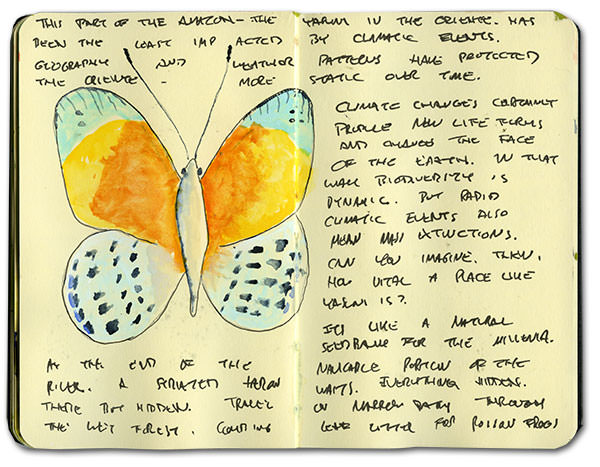 THIS PART OF THE AMAZON - THE YASUNI IN THE ORIENTE. HAS
BEEN THE LEAST IMPACTED BY CLIMATIC EVENTS.
GEOGRAPHY AND WEATHER PATTERNS HAVE PROTECTED
THE ORIENTE - MORE STATIC OVER TIME.
CLIMATE CHANGES CERTAINLY
PROFILE NEW LIFE FORMS
AND CHANGE THE FACE
OF THE EARTH. IN THAT
WAY BIODIVERSITY IS
DYNAMIC. BUT RAPID
CLIMATIC EVENTS ALSO
MEAN MASS EXTINCTIONS.
CAN YOU IMAGINE, THEN,
HOW VITAL A PLACE LIKE
YASUNI IS?
IT'S LIKE A NATURAL
SEEDBANK FOR THE MILLENIA.
AT THE END OF THE NAVIGABLE PORTION OF THE
RIVER. A STRIATED HERON WAITS. EVERYTHING HIDDEN.
THERE BUT HIDDEN. ON NARROW PATH THROUGH
THE WET FOREST. LEAF LITTER FOR POISON FROGS